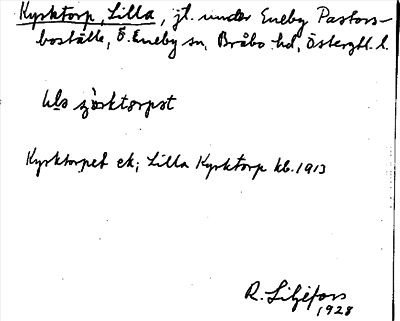 Kyrktorp, Lilla, jt. under Eneby Pastors-
boställe, Ö. Eneby sn, Bråbo hd, Östergtl. l.
Kyrktorpet ek; Lilla Kyrktorp kb. 1913
R. Liljefors
1928